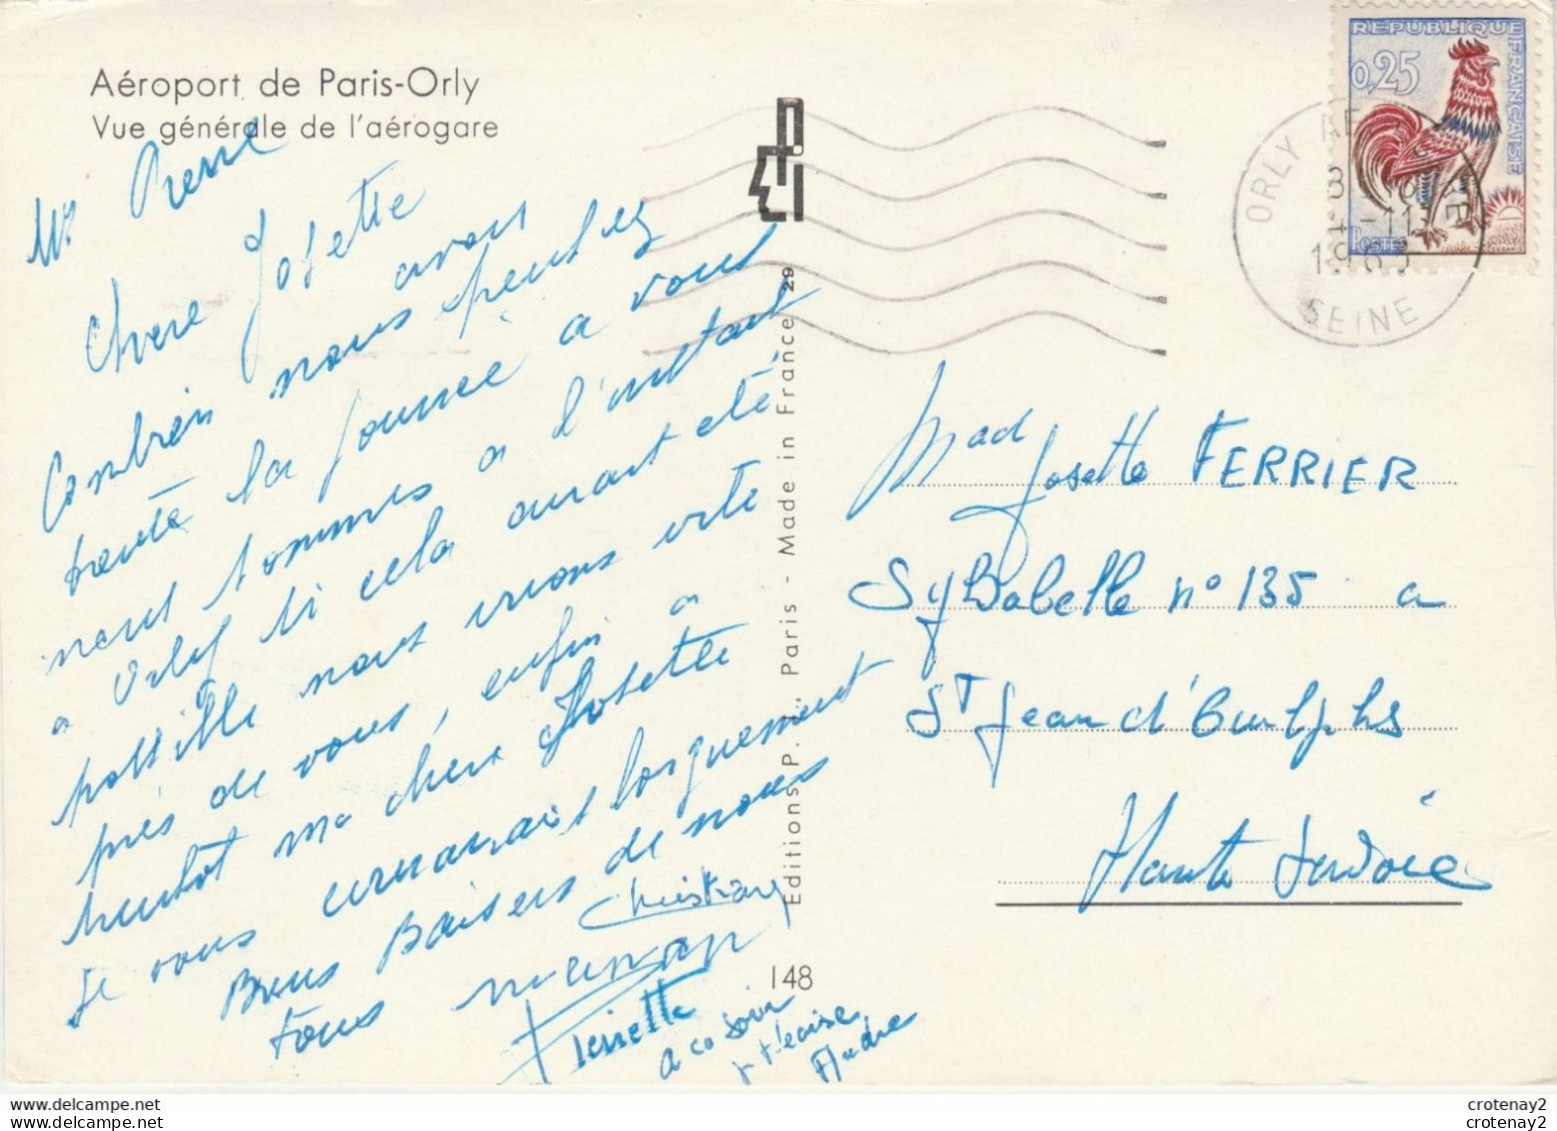 Aéroport de Paris-Orly
Vue générale de l'aérogare
Mr Pierre
Chere Josette
Combien nous avons
pensé la journée a vous
nous sommes a l'instant
a Orly si cela aurait été
possible nous irions vite
près de vous, enfin a
bientot ma chere Josette
je vous longuement
Bons Baisers de nous
tous
Christian
maman
Pierrette
a ce soir
André
Editions P. I., Paris - Made in France 29
148
REPUBLIQUE FRANÇAISE
0,25
POSTES
ORLY AE
4-11
SEINE
Mad
Josette FERRIER
Sylbabelle n° 135 a
St Jean d'Aulphs
Haute Savoie
delcampe.net
crotenay2
delcampe.net
crotenay2